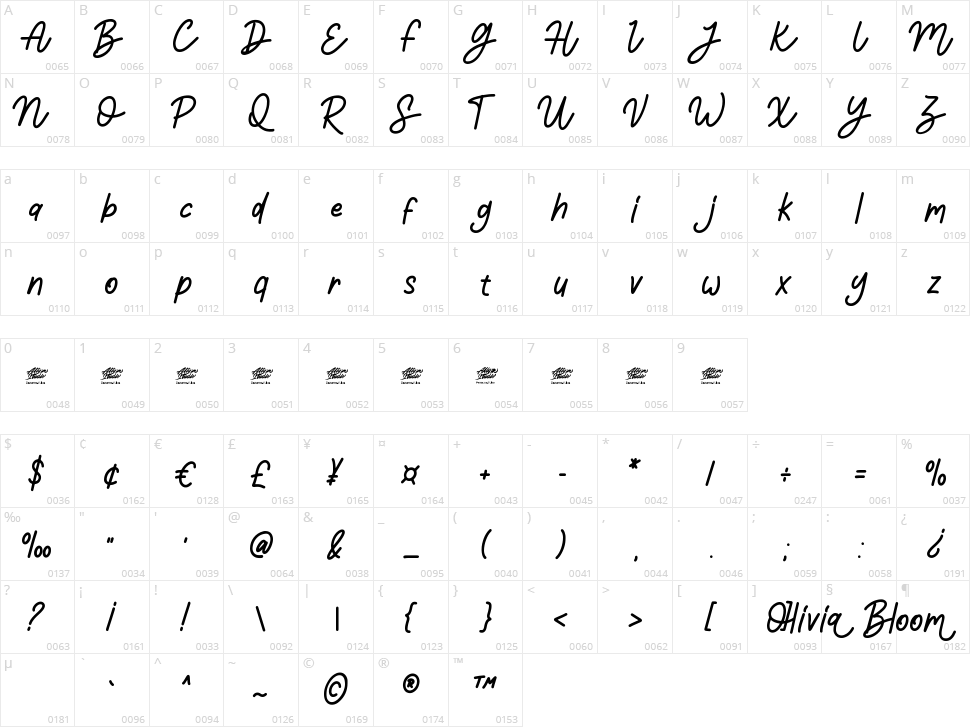 A B C D E F G H I J K L M
A B C D E F G H I J K L M
0065 0066 0067 0068 0069 0070 0071 0072 0073 0074 0075 0076 0077
N O P Q R S T U V W X Y Z
N O P Q R S T U V W X Y Z
0078 0079 0080 0081 0082 0083 0084 0085 0086 0087 0088 0089 0090
a b c d e f g h i j k l m
a b c d e f g h i j k l m
0097 0098 0099 0100 0101 0102 0103 0104 0105 0106 0107 0108 0109
n o p q r s t u v w x y z
n o p q r s t u v w x y z
0110 0111 0112 0113 0114 0115 0116 0117 0118 0119 0120 0121 0122
0 1 2 3 4 5 6 7 8 9
0048 0049 0050 0051 0052 0053 0054 0055 0056 0057
$ ¢ € £ ¥ ¤ + - * / ÷ = %
$ ¢ € £ ¥ ¤ + - * / ÷ = %
0036 0162 0128 0163 0165 0164 0043 0045 0042 0047 0247 0061 0037
‰ " ' @ & _ ( ) , . ; : ¿
‰ " ' @ & _ ( ) , . ; : ¿
0137 0034 0039 0064 0038 0095 0040 0041 0044 0046 0059 0058 0191
? ¡ ! \ | { } < > [ ] § ¶
? ¡ ! \ | { } < > [ ] Olivia Bloom
0063 0161 0033 0092 0124 0123 0125 0060 0062 0091 0093 0167 0182
µ ` ^ ~ © ® ™
` ^ ~ © ® ™
0181 0096 0094 0126 0169 0174 0153